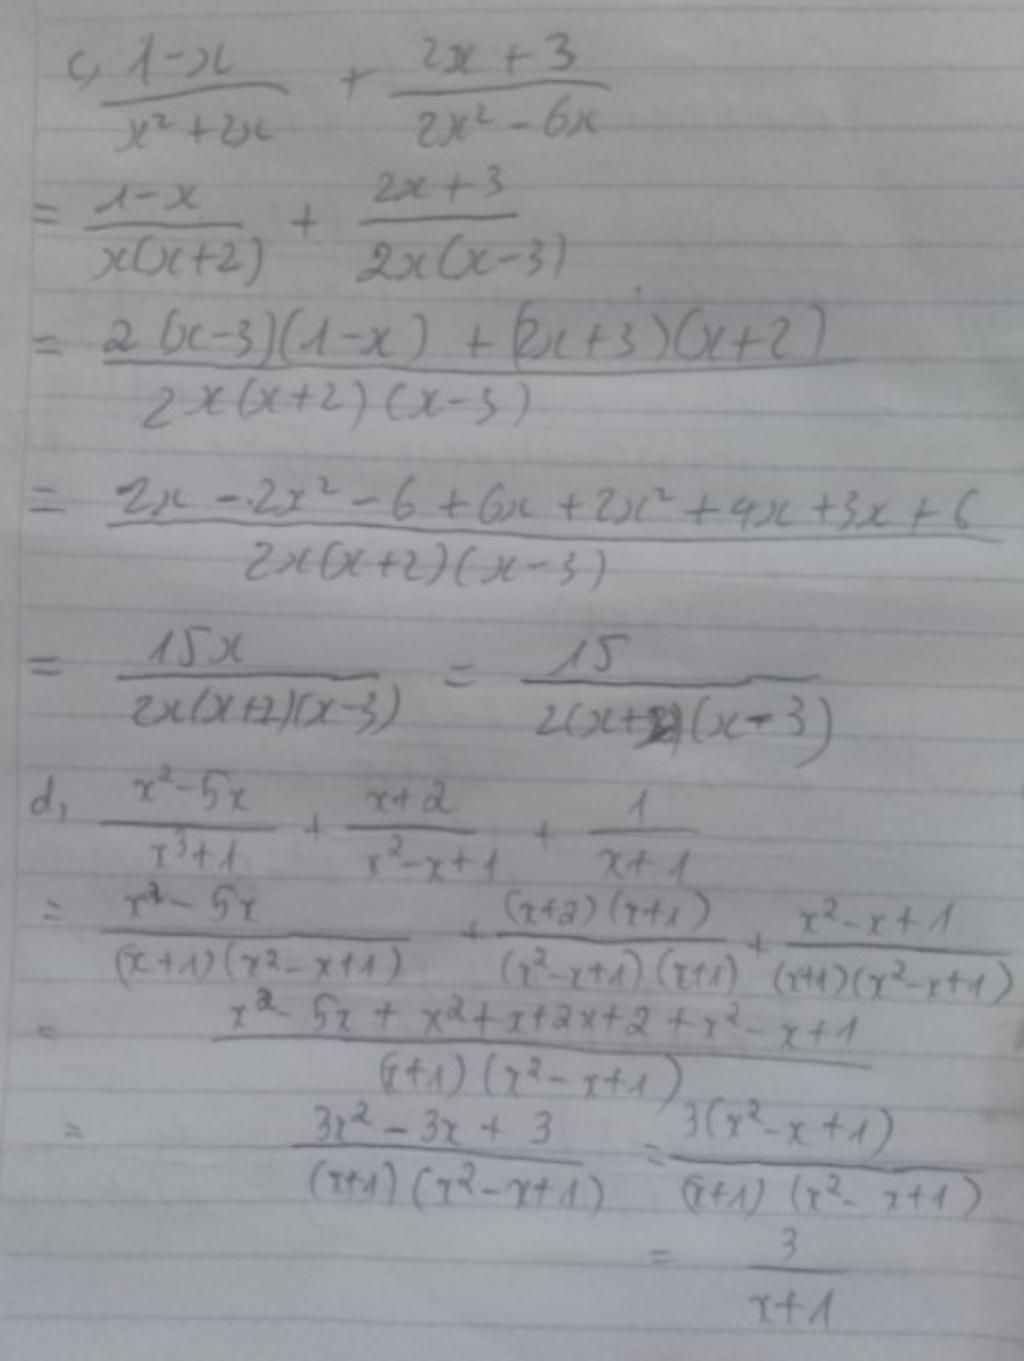 c, (1-x)/(x²+2x) + (2x+3)/(2x²-6x)
= (1-x)/(x(x+2)) + (2x+3)/(2x(x-3))
= (2(x-3)(1-x) + (2x+3)(x+2))/(2x(x+2)(x-3))
= (2x-2x²-6+6x+2x²+4x+3x+6)/(2x(x+2)(x-3))
= 15x/(2x(x+2)(x-3)) = 15/(2(x+2)(x-3))
d, (x²-5x)/(x³+1) + (x+2)/(x²-x+1) + 1/(x+1)
= (x²-5x)/((x+1)(x²-x+1)) + ((x+2)(x+1))/((x²-x+1)(x+1)) + (x²-x+1)/((x+1)(x²-x+1))
= (x²-5x+x²+x+2x+2+x²-x+1)/((x+1)(x²-x+1))
= (3x²-3x+3)/((x+1)(x²-x+1)) = 3(x²-x+1)/((x+1)(x²-x+1))
= 3/(x+1)